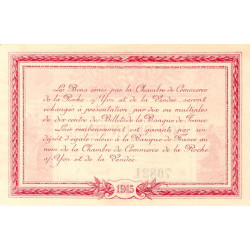 Les Bons émis par la Chambre de Commerce
de la Roche s/Yon et de la Vendée, seront
échangés à présentation par dix ou multiples
de dix contre des Billets de la Banque de France.
Leur remboursement est garanti par un
dépôt d'égale valeur à la Banque de France au
nom de la Chambre de Commerce de la Roche
s/Yon et de la Vendée.
1915